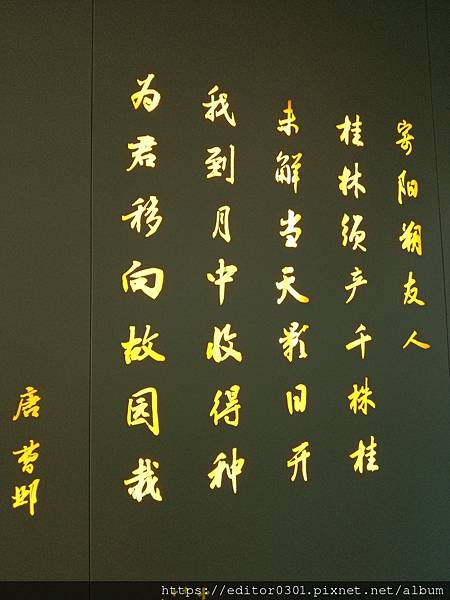 寄阳朔友人
桂林须产千株桂
未解当天影日开
我到月中收得种
为君移向故园栽
唐 曹邺
https://editor0301.pixnet.net/album